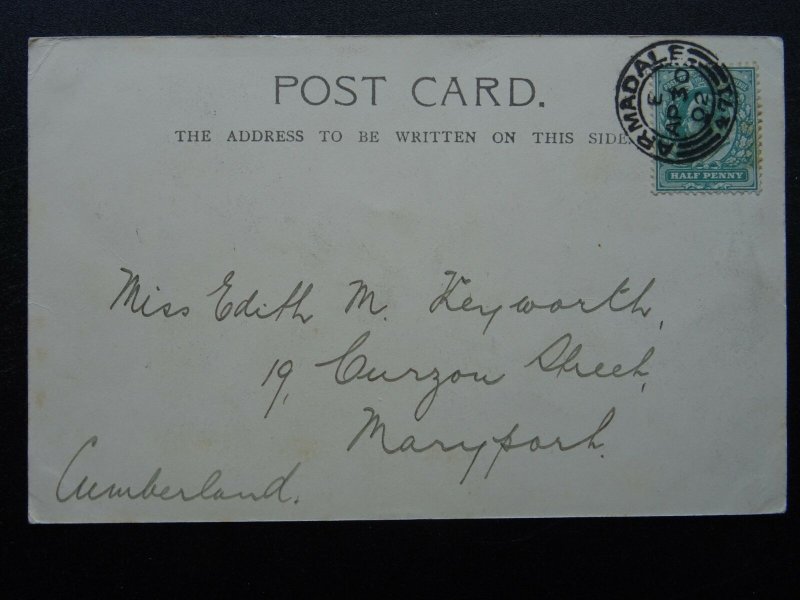 POST CARD.
THE ADDRESS TO BE WRITTEN ON THIS SIDE.
ARMADALE
E
AP 30
02
HALF PENNY
Miss Edith M. Keyworth,
19, Curzon Street,
Maryport.
Cumberland.